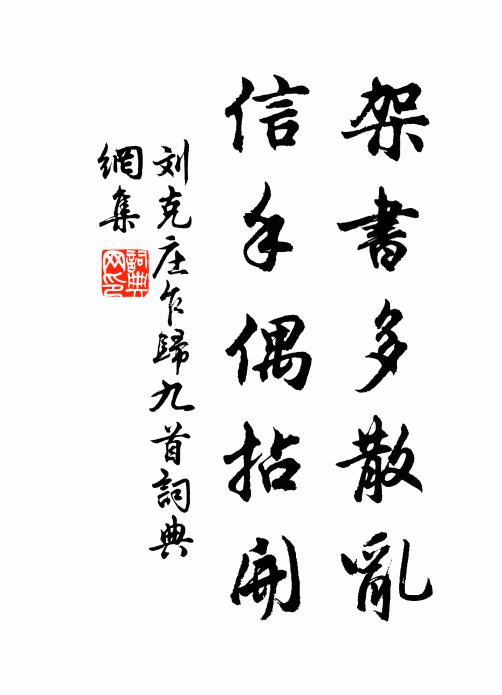 架書多散亂
信手偶拈開
刘克庄乍歸九首詞典
網集
詞典
网印